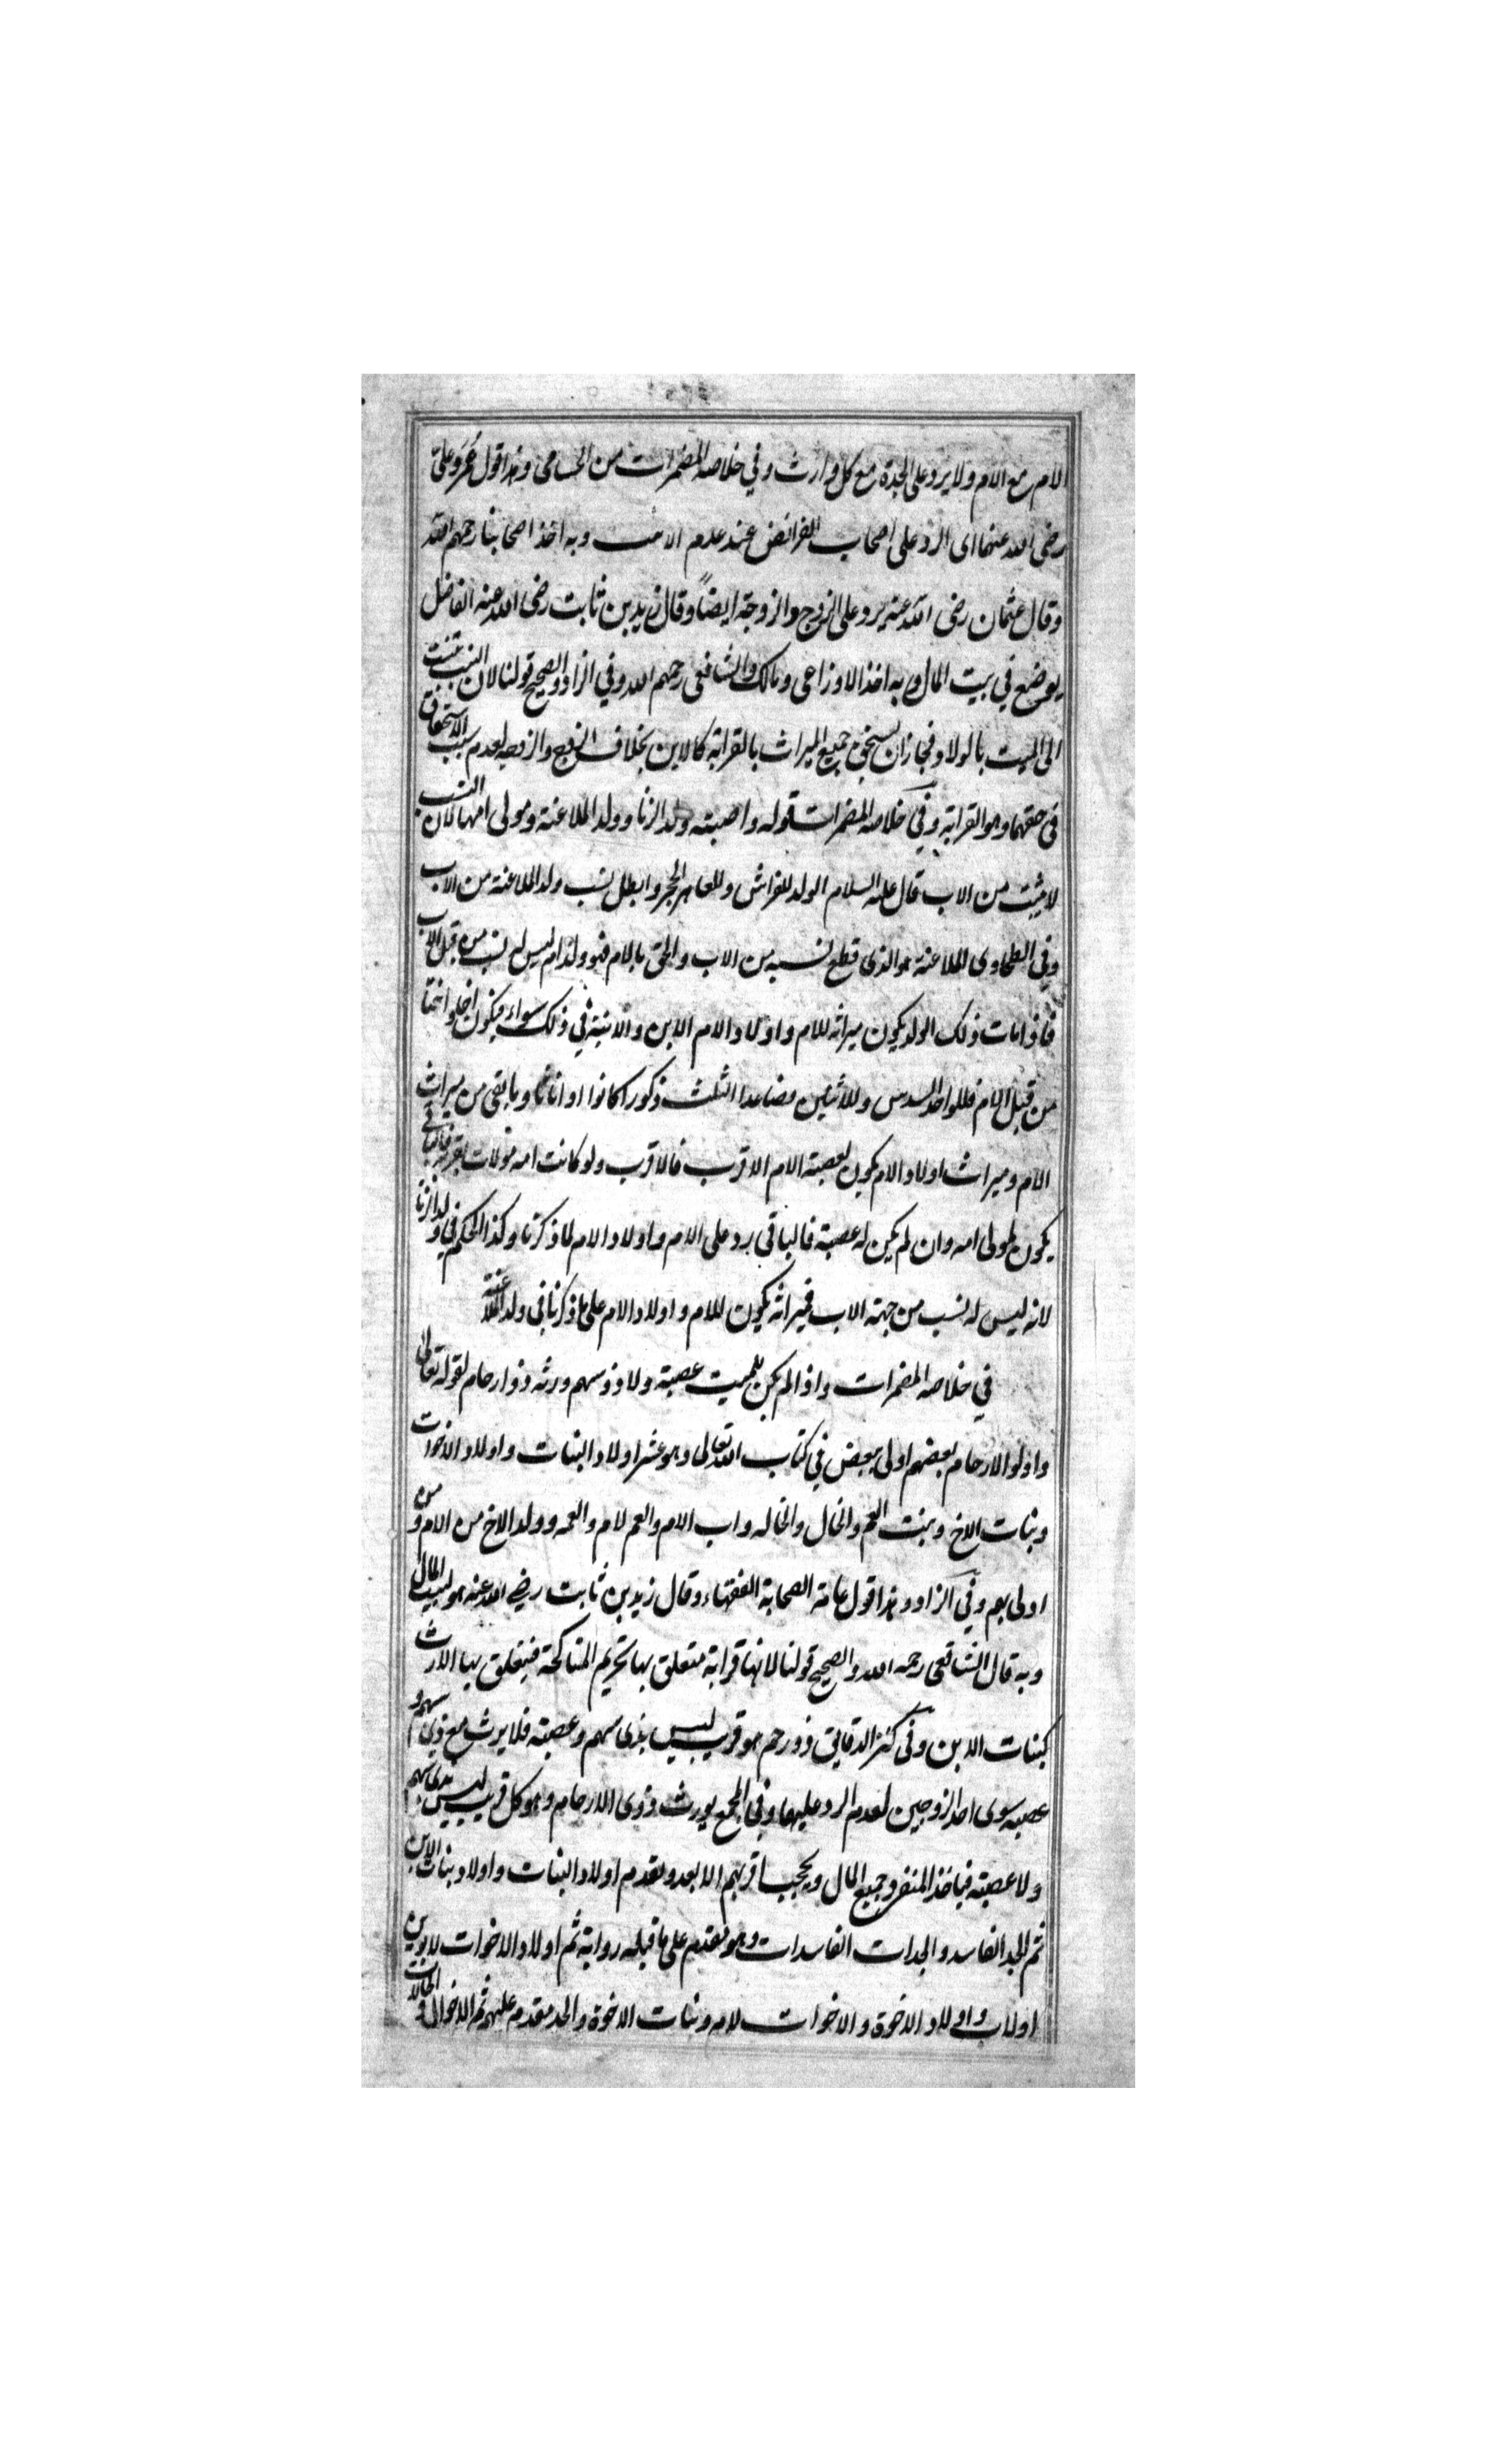 الام مع الام ولا يرد على الجدة مع كل وارث وفي خلاصه المضمرات من الحسامى وهذا قول عُمَر وعلىّ
رضى الله عنهما اى الرد على اصحاب الفرائض عند عدم وبه اخذ اصحابنا رحمهم الله
وقال عثمان رضى الله عنه يرد على الزوج والزوجة ايضاً وقال زيد بن ثابت رضى الله عنه الفاضل
يوضع في بيت المال وبه اخذ الاوزاعى ومالك والشافعى رحمهم الله وفي الزاد والصحيح قولنا لان البنت تنسب
الى الميت بالولاد فجاز ان يستحق جميع الميراث بالقرابة كالابن بخلاف الزوج والزوجه لعدم سبب الاستحقاق
فى حقهما وهو القرابة وفي خلاصه المضمرات قوله واصبته ولد الزنا وولد الملاعنة ومولى امهما لان النسب
لا يثبت من الاب قال عليه السلام الولد للفراش وللعاهر الحجر وابطل نسب ولد الملاعنة من الاب
وفي الطحاوى الملاعنة هو الذى قطع نسبه من الاب والحق بالام فهو ولد ام ليس له نسب من قبل الاب
فاذا مات ذلك الولد يكون ميراثه للام واولاد الام الابن والابنة في ذلك سواء فيكون اخا واختا
من قبل الام فللواحد السدس وللاثنين فصاعدا الثلث ذكورا كانوا او اناثا وما بقى من ميراث
الام وميراث اولاد الام يكون لعصبة الام الاقرب فالاقرب ولو كانت امه مولات فالباقي
يكون لمولى امه وان لم يكن له عصبة فالباقي رد على الام واولاد الام لما ذكرنا وكذا الحكم في ولد الزنا
لانه ليس له نسب من جهة الاب فميراثه يكون للام واولاد الام على ما ذكرنا في ولد الملاعنة
في خلاصه المضمرات واذا لم يكن للميت عصبة ولا ذو سهم ورثه ذو ارحام لقوله تعالى
واولوا الارحام بعضهم اولى ببعض في كتاب الله تعالى وهو عشر اولاد البنات واولاد الاخوات
وبنات الاخ وبنت العم والخال والخاله واب الام والعم لام والعمه وولد الاخ من الام ومن
اولى بهم وفي الزاد وهذا قول عامة الصحابة الفقهاء وقال زيد بن ثابت رضى الله عنه هو لبيت المال
وبه قال الشافعى رحمه الله والصحيح قولنا لانها قرابة متعلق بها تحريم المناكحة فيتعلق بها الارث
كبنات الابن وفي كنز الدقائق ذو رحم هو قريب ليس بذى سهم وعصبته فلا يرث مع ذي سهم و
عصبه سوى احد الزوجين لعدم الرد عليهما وفي المجمع يورث ذوى الارحام وهو كل قريب ليس بذى سهم
ولا عصبته فياخذ المنفرد جميع المال ويحجب اقربهم الابعد ونقدم اولاد البنات واولاد بنات الابن
ثم الجد الفاسد والجدات الفاسدات وهو مقدم على ما قبله رواية ثم اولاد الاخوات لابوين
او لاب واولاد الاخوة والاخوات لام وبنات الاخوة والجد مقدم عليهم ثم الاخوال والخالات